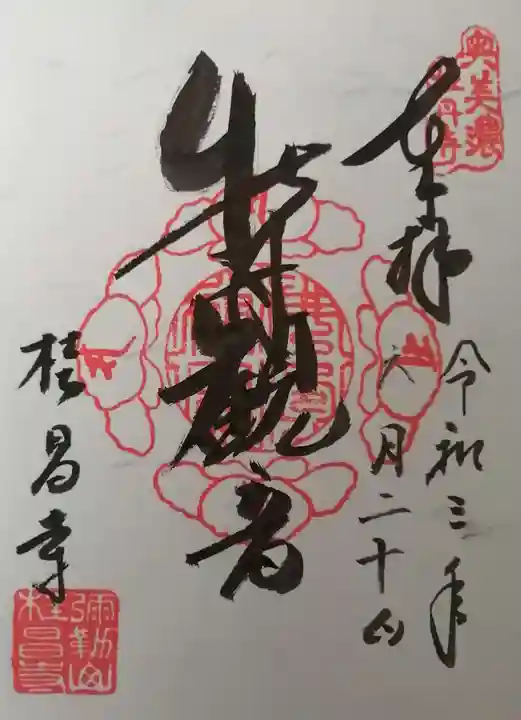 奥美濃
牡丹寺
奉拝
令和三年
六月二十日
観音
桂昌寺
彌勒山
桂昌寺